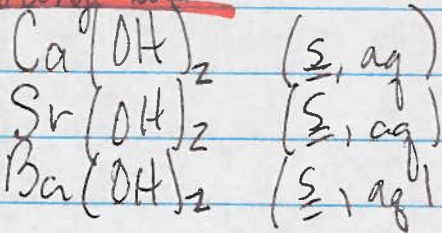 Ca(OH)₂ (s, aq)
Sr(OH)₂ (s, aq)
Ba(OH)₂ (s, aq)